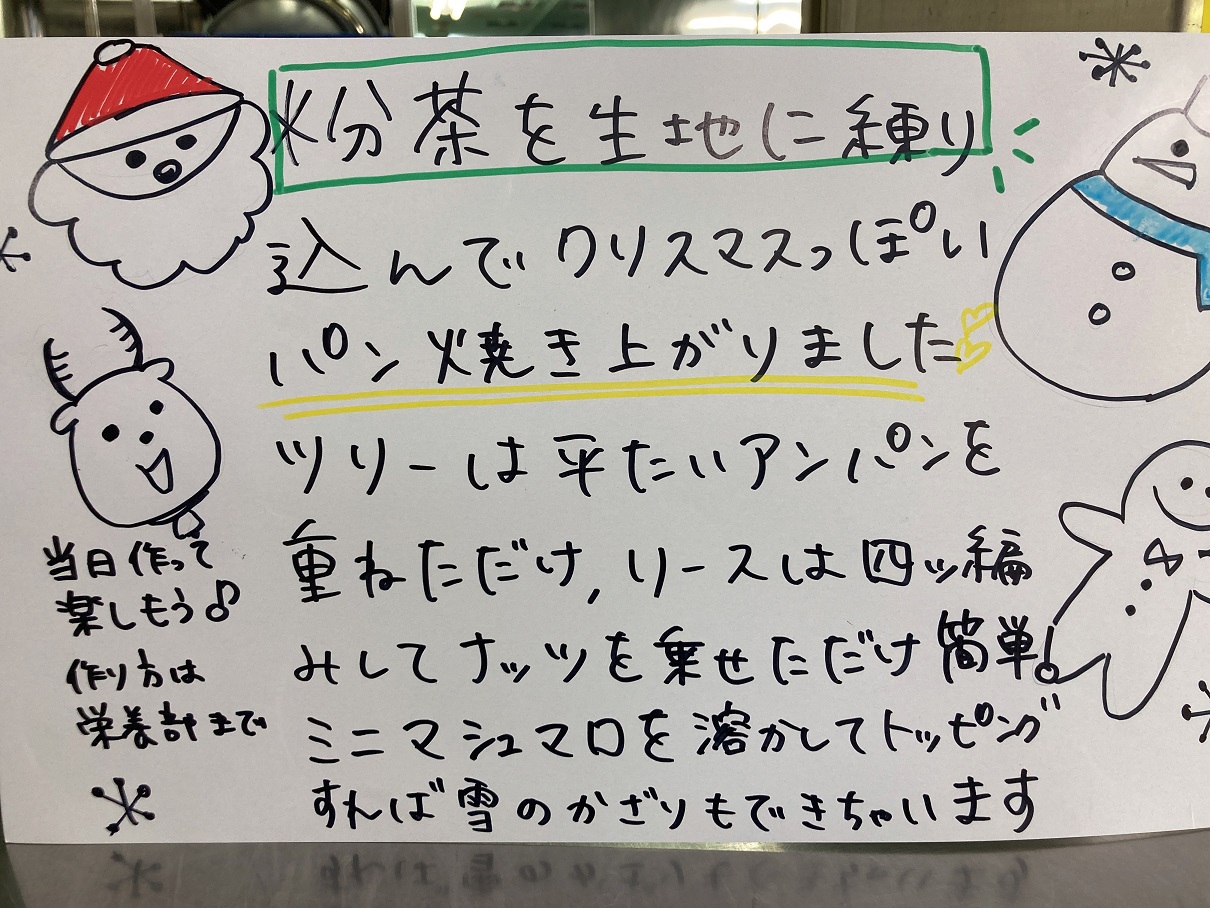 粉茶を生地に練り
込んでクリスマスっぽい
パン焼き上がりました
ツリーは平たいアンパンを
重ねただけ, リースは四ッ編
みしてナッツを乗せただけ簡単!
ミニマシュマロを溶かしてトッピング
すれば雪のかざりもできちゃいます
当日作って
楽しもう♪
作り方は
栄養部まで